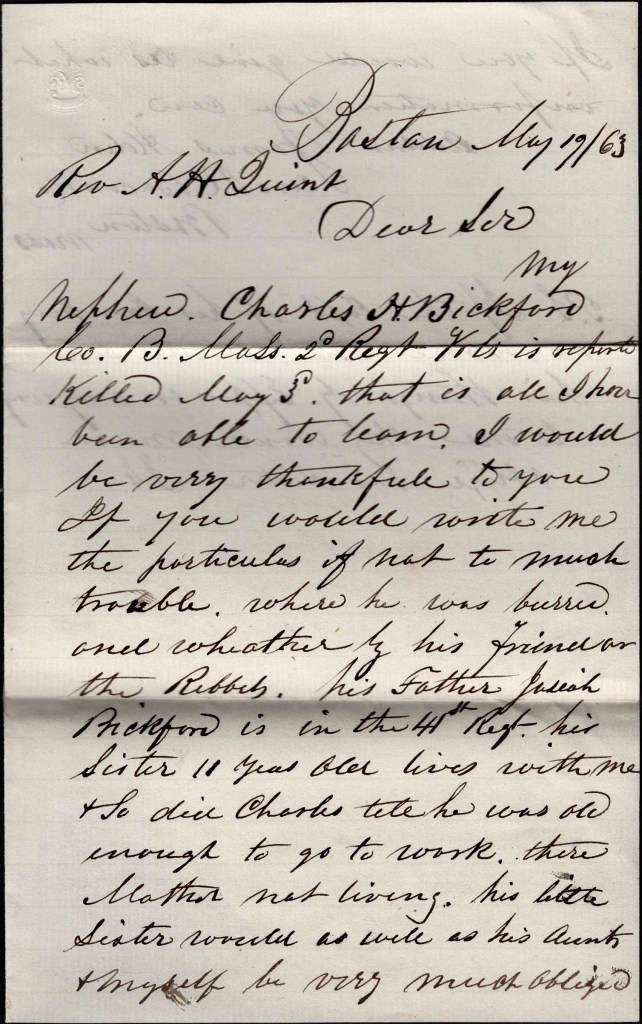 Boston May 19/63
Rev A. H. Quint
Dear Ser
my
Nephew. Charles H. Bickford
Co. B. Mass. 2d Regt Vols is reporte
Killed May 3d. that is all I have
been able to learn. I would
be very thankfull to you
If you would write me
the particulas if not to much
trouble. where he was burred.
and wheather by his friend or
the Rebbels. his Father Josiah
Bickford is in the 41st Regt. his
Sister 11 Years Old lives with me
& So did Charles till he was old
enough to go to work. there
Mother not living. his little
Sister would as well as his Aunt
& myself be very much obliged